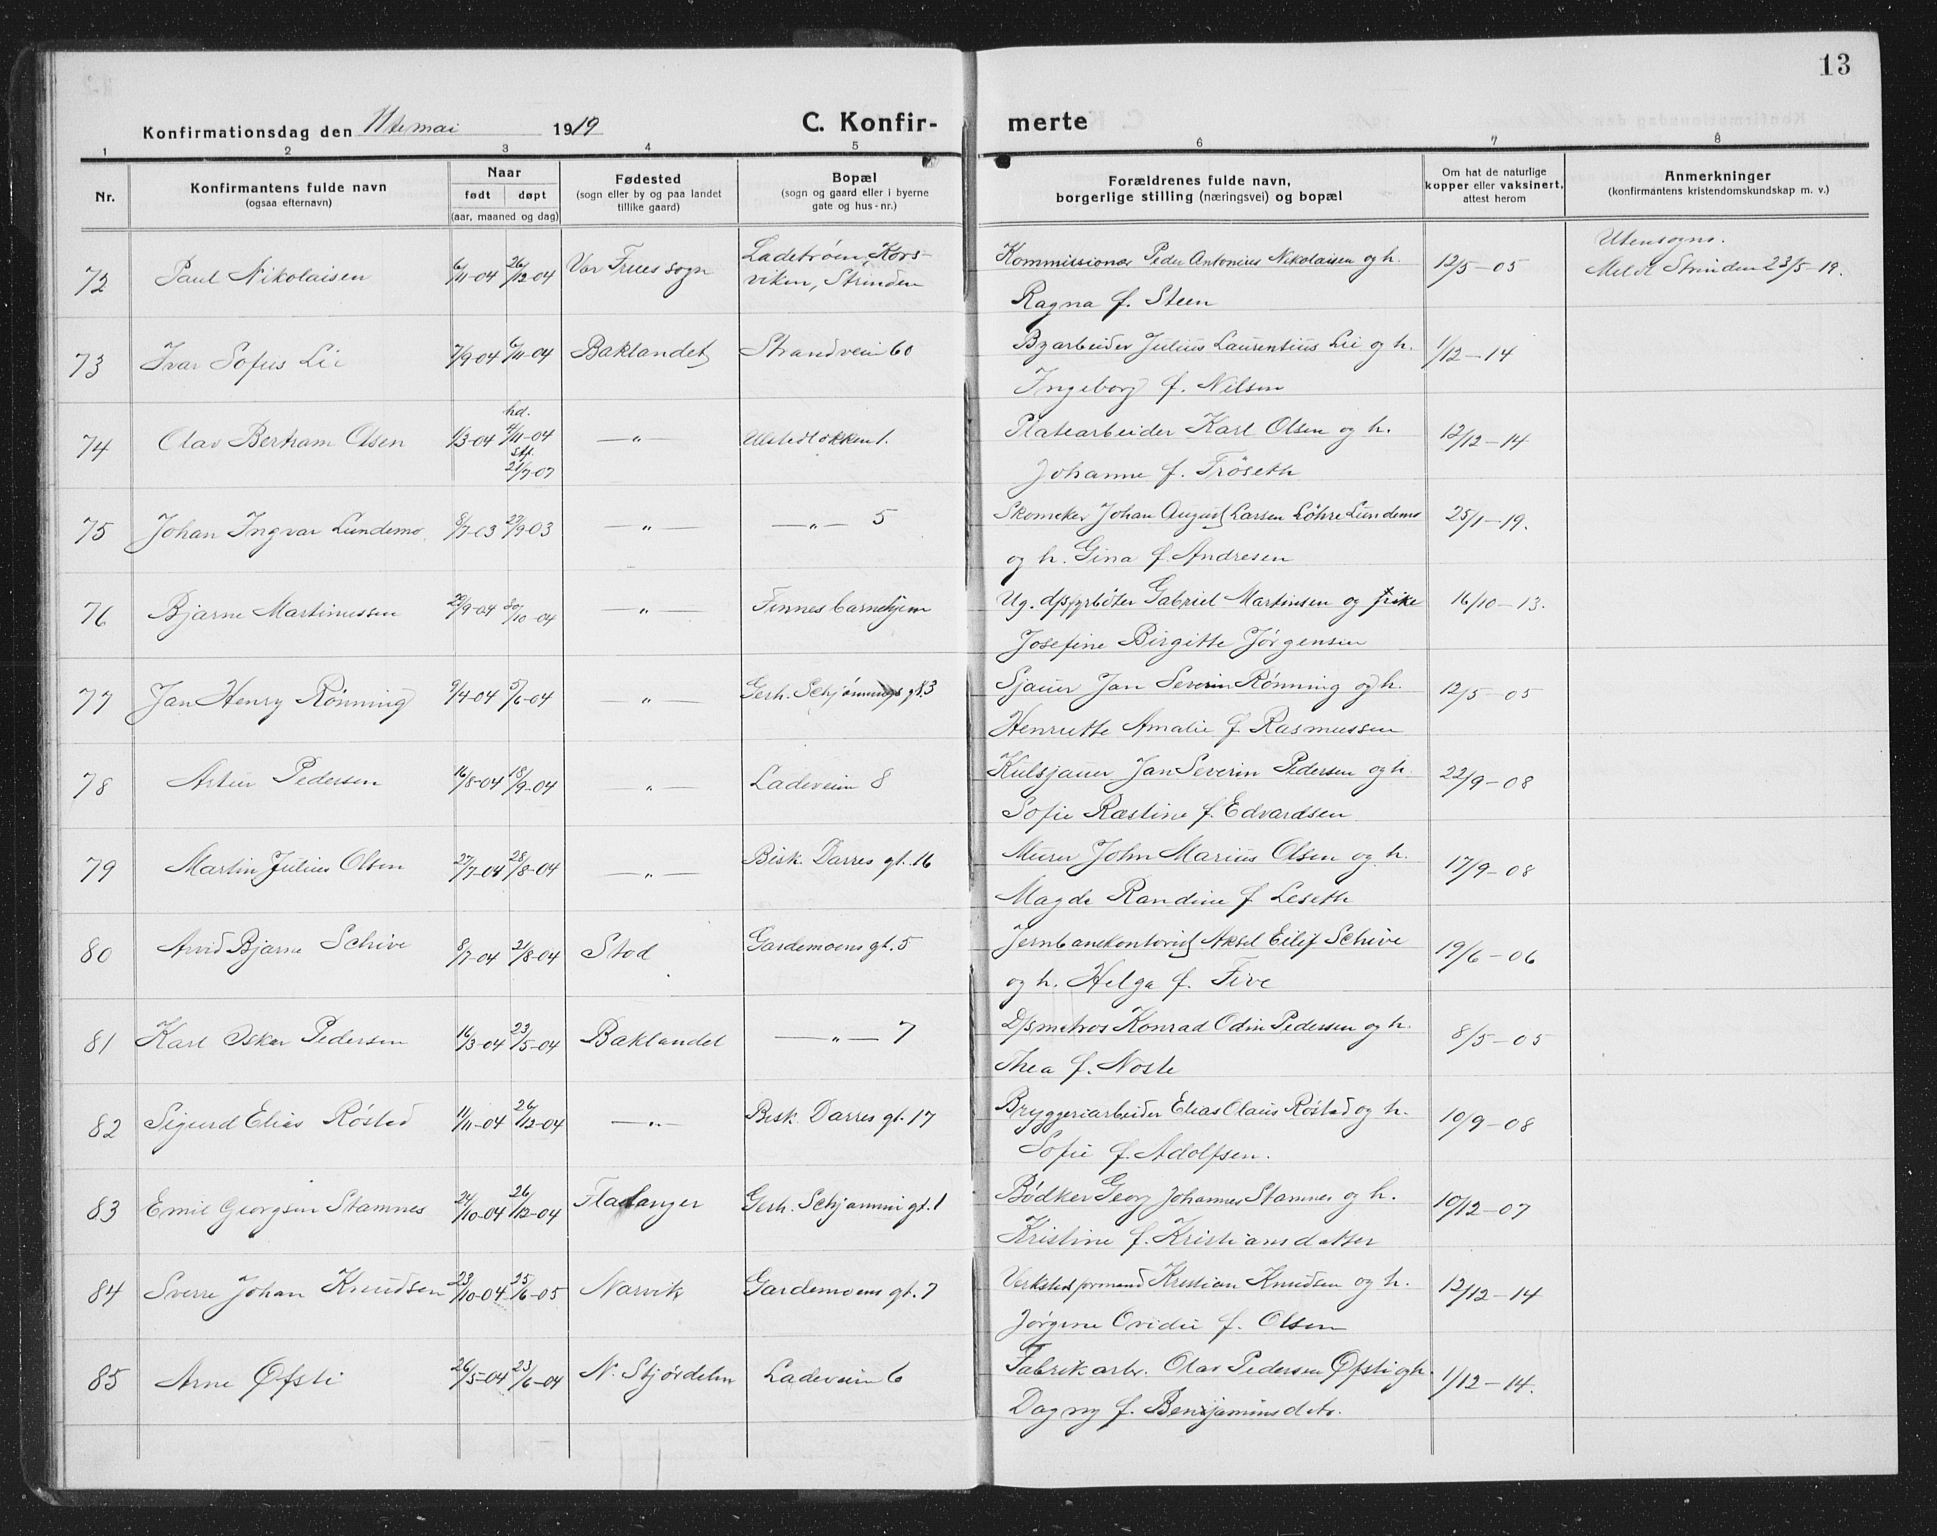 13
Konfirmationsdag den 11te mai 1919 C. Konfir- merte
1 2 3 4 5 6 7 8
Nr. Konfirmantens fulde navn (ogsaa efternavn) Naar født døpt (aar, maaned og dag) Fødested (sogn eller by og paa landet tillike gaard) Bopæl (sogn og gaard eller i byerne gate og hus-nr.) Forældrenes fulde navn, borgerlige stilling (næringsvei) og bopæl Om hat de naturlige kopper eller vaksinert, attest herom Anmerkninger (konfirmantens kristendomskundskap m. v.)
72 Paul Nikolaisen 6/11-04 26/12-04 Vor Frues sogn Ladetrøen, Kors- Kommissionær Peder Antonius Nikolaisen og h. 12/5-05 Utensogns.
viken, Strinden Ragna f. Steen Meldt Strinden 23/5-19.
73 Ivar Sofus Lie 7/9-04 6/11-04 Baklandet Strandveien 60 Byarbeider Julius Laurentius Lie og h. 1/12-14
Ingeborg f. Nilsen
hd.
74 Olav Bertram Olsen 1/3-04 4/11-04 —„— Ulstedløkken 1. Platearbeider Karl Olsen og h. 12/12-14
stf. 21/7-07 Johanne f. Trøseth
75 Johan Ingvar Lundemo 8/7-03 27/9-03 —„— —„— 5 Skomaker Johan August Larsen Løhre Lundemo 25/1-19.
og h. Gina f. Andresen
76 Bjarne Martinussen 29/9-04 30/10-04 —„— Finnes barnehjem Ug. Gabriel Martinsen og pike 16/10-13.
Josefine Birgitte Jørgensen
77 Jan Henry Rønning 9/4-04 5/6-04 —„— Gerh. Schjønnings gt. 3 Sjauer Jan Severin Rønning og h. 12/5-05
Henriette Amalie f. Rasmussen
78 Artur Pedersen 16/8-04 18/9-04 —„— Ladeveien 8 Kulsjauer Jan Severin Pedersen og h. 22/9-08
Sofie Rastine f. Edvardsen
79 Martin Julius Olsen 27/7-04 28/8-04 —„— Bisk. Darres gt. 16 Murer John Marius Olsen og h. 17/9-08
Magda Randine f. Leseth
80 Arvid Bjarne Schive 8/7-04 21/8-04 Stod Gardemoens gt. 5 Jernbanekontorist Aksel Eilif Schive 19/6-06
og h. Helga f. Five
81 Karl Oskar Pedersen 16/3-04 23/5-04 Baklandet —„— 7 Konrad Odin Pedersen og h. 8/5-05
Thea f. Noste
82 Sigurd Elias Røstad 11/11-04 26/12-04 —„— Bisk. Darres gt. 17 Bryggeriarbeider Elias Olaus Røstad og h. 10/9-08
Sofie f. Adolfsen.
83 Emil Georgsen Stamnes 24/10-04 26/12-04 Flatanger Gerh. Schjønnin gt. 1 Bødker Georg Johannes Stamnes og h. 10/12-07
Kristine f. Kristiansdatter
84 Sverre Johan Knudsen 23/10-04 25/6-05 Narvik Gardemoens gt. 7 Verkstedformand Kristian Knudsen og h. 12/12-14
Jørgine Ovidie f. Olsen
85 Arne Øfsti 26/5-04 23/6-04 N. Stjørdalen Ladeveien 6 Fabrikarbr. Olav Pedersen Øfsti og h. 1/12-14.
Dagny f. Benjaminsdtr.